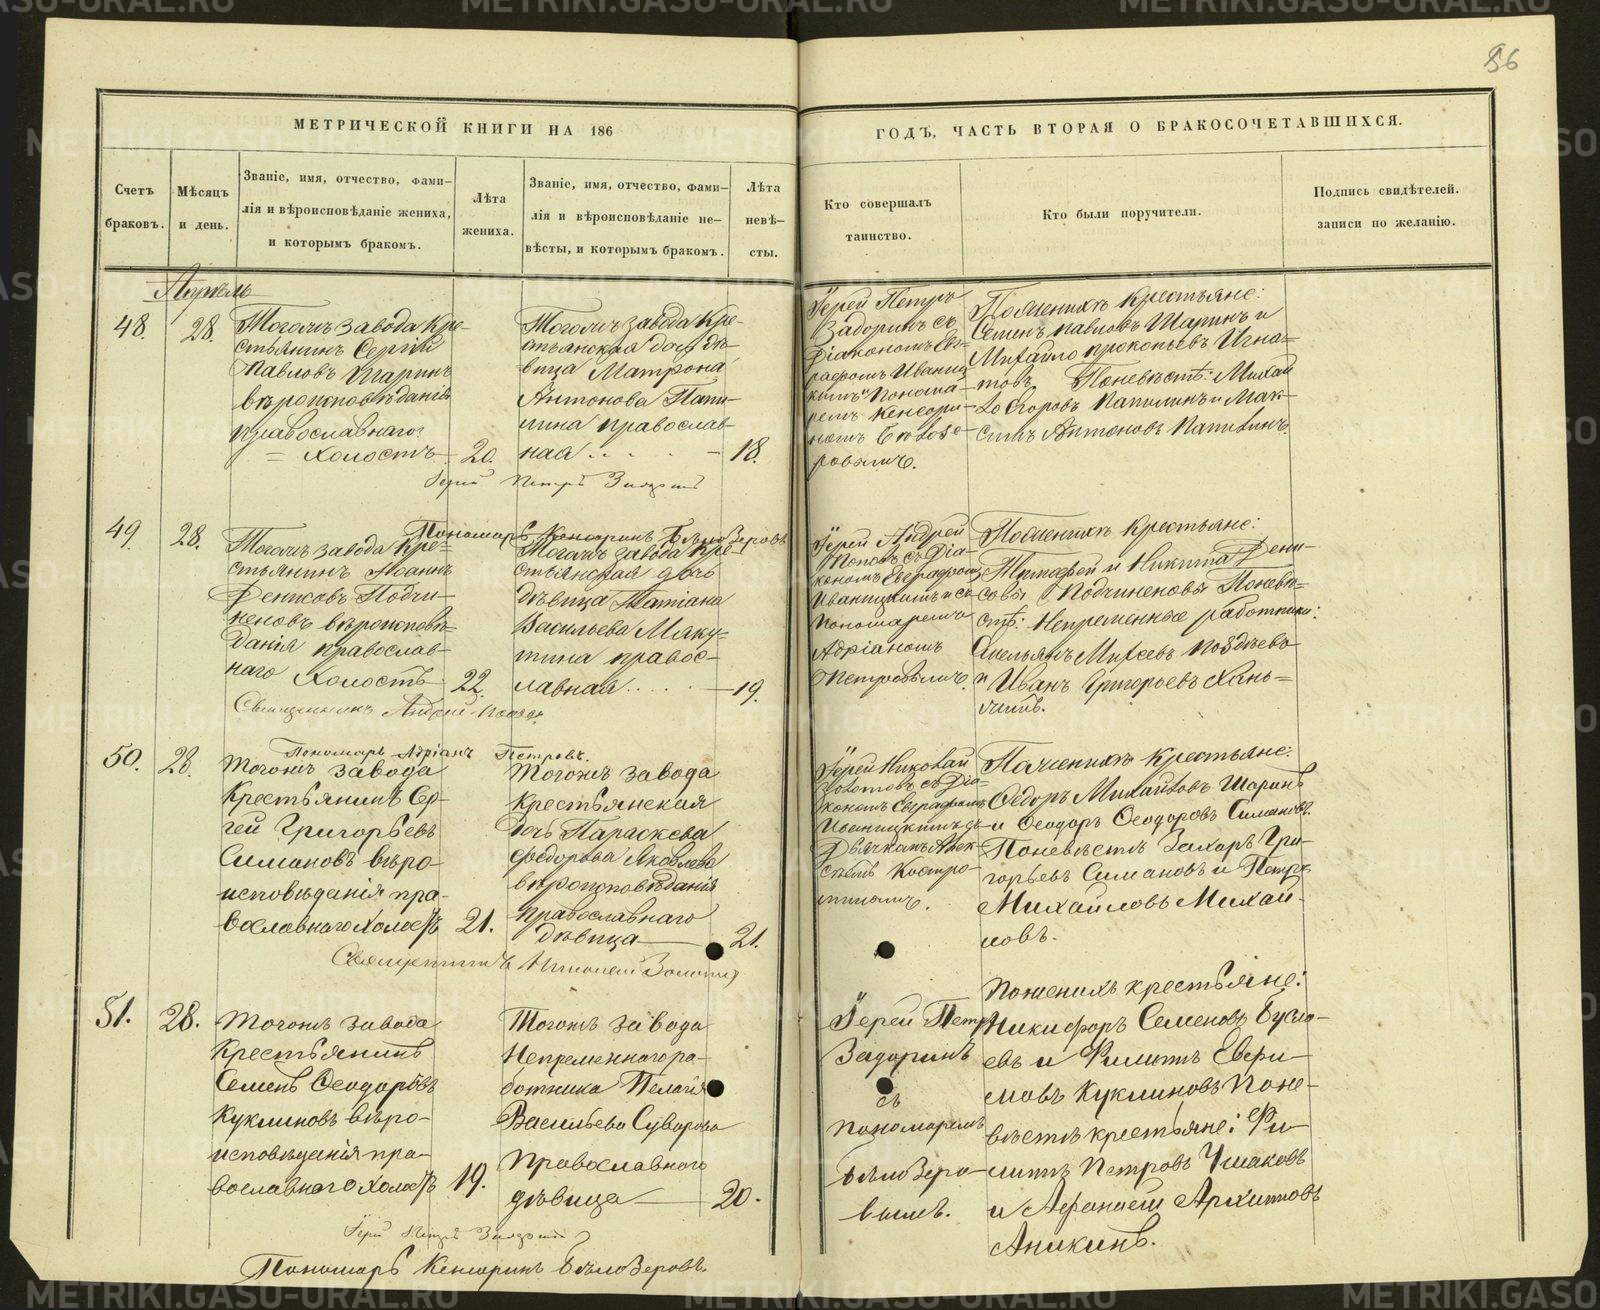 86
МЕТРИЧЕСКОЙ КНИГИ НА 186
ГОДЪ, ЧАСТЬ ВТОРАЯ О БРАКОСОЧЕТАВШИХСЯ.
Счетъ
браковъ.
Мѣсяцъ
и день.
Званіе, имя, отчество, фами-
лія и вѣроисповѣданіе жениха,
и которымъ бракомъ.
Лѣта
жениха.
Званіе, имя, отчество, фами-
лія и вѣроисповѣданіе не-
вѣсты, и которымъ бракомъ.
Лѣта
невѣ-
сты.
Кто совершалъ
таинство.
Кто были поручители.
Подпись свидѣтелей.
записи по желанію.
Апрѣль
48.
28.
Тогожъ завода кре-
стьянинъ Сергій
Павловъ Шаринъ
вѣроисповѣданія
православнаго
= Холостъ
20.
Тогожъ завода кре-
стьянская дочь дѣ-
вица Матрона
Антонова Папи-
лина православ-
ная
18.
Іерей Петръ
Задоринъ съ
Діакономъ Ев-
графомъ Иваниц-
кимъ и понома-
ремъ Кенсори-
номъ Бѣлозе-
ровымъ.
По женихѣ крестьяне:
Семенъ Павловъ Шаринъ и
Михайло Прокопьевъ Игна-
товъ. По невѣстѣ: Михай-
ло Егоровъ Папилинъ и Мак-
симъ Антоновъ Папилинъ.
Іерей Петръ Задоринъ
Пономарь Кенсоринъ Бѣлозеровъ
49.
28.
Тогожъ завода кре=
стьянинъ Іоаннъ
Денисовъ Подчи-
неновъ вѣроисповѣ=
данія православ-
наго Холостъ
22.
Тогожъ завода кре-
стьянская дочь
дѣвица Татіана
Васильева Маку-
шина правос-
лавная
19.
Іерей Андрей
Поповъ съ Діа-
кономъ Евграфомъ
Иваницкимъ и съ
пономаремъ
Адріаномъ
Петровымъ.
По женихѣ крестьяне:
Тимофей и Никита Дени-
совы Подчиненовы По невѣ-
стѣ: Непременные работники:
Емельянъ Михеевъ Поздѣевъ
и Иванъ Григорьевъ Хань-
Священникъ Андрей Поповъ
Пономарь Адріанъ Петровъ.
50.
28.
Тогожъ завода
Крестьянинъ Сер-
гей Григорьевъ
Симановъ вѣро-
исповѣданія пра-
вославнаго холостъ
21.
Тогожъ завода
крестьянская
дочь Параскева
Федорова Яковлева
вѣроисповѣданія
православнаго
дѣвица
21.
Іерей Николай
Золотовъ съ Діа-
кономъ Евграфомъ
Иваницкимъ съ
Дьячкомъ Алек-
сѣемъ Костро-
миныхъ.
По женихѣ крестьяне:
Ѳедоръ Михайловъ Шаринъ
и Ѳеодоръ Ѳеодоровъ Симановъ.
По невѣстѣ Захаръ Гри-
горьевъ Симановъ и Петръ
Михайловъ Михай-
ловъ.
Священникъ Николай Золотовъ
51.
28.
Тогожъ завода
Крестьянинъ
Семенъ Ѳеодоровъ
Куклиновъ вѣро-
исповѣданія пра-
вославнаго холостъ
19.
Тогожъ завода
Непременнаго ра-
ботника Пелагія
Васильева Суворова
Православнаго
дѣвица
20.
Іерей Петръ
Задоринъ
съ
пономаремъ
Бѣлозеро-
вымъ.
По женихѣ крестьяне:
Никифоръ Семеновъ Бусло-
евъ и Филипъ Евфи-
мовъ Куклиновъ По не-
вѣстѣ крестьяне: Фи-
липъ Петровъ Ушаковъ
и Афонасій Архиповъ
Аникинъ.
Іерей Петръ Задоринъ
Пономарь Кенсоринъ Бѣлозеровъ.
METRIKI.GASO-URAL.RU